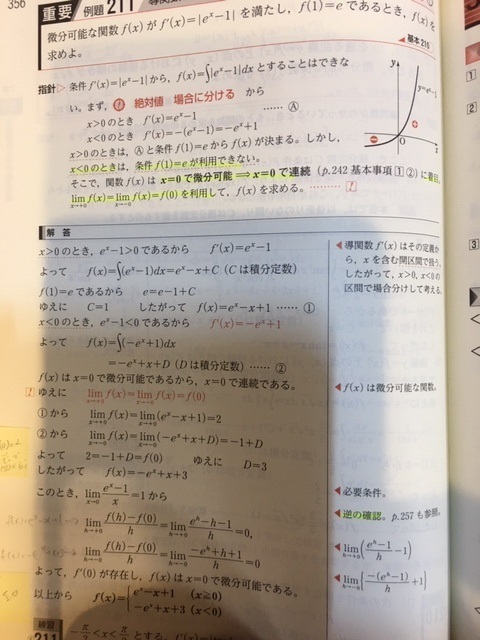 356
重要 例題 211
微分可能な関数 f(x) が f'(x)=|eˣ−1| を満たし, f(1)=e であるとき, f(x) を
求めよ。
基本 210
指針▷ 条件 f'(x)=|eˣ−1| から, f(x)=∫|eˣ−1|dx とすることはできな
い。まず, 絶対値 場合に分ける から
x>0 のとき f'(x)=eˣ−1
x<0 のとき f'(x)=−(eˣ−1)=−eˣ+1 …… Ⓐ
x>0 のときは, Ⓐ と条件 f(1)=e から f(x) が決まる。しかし,
x<0 のときは, 条件 f(1)=e が利用できない。
そこで, 関数 f(x) は x=0 で微分可能 ⟹ x=0 で連続 (p.242 基本事項 1 2) に着目。
lim[x→+0] f(x)=lim[x→−0] f(x)=f(0) を利用して, f(x) を求める。 …… !
y
y=eˣ−1
O
x
解答
x>0 のとき, eˣ−1>0 であるから f'(x)=eˣ−1
よって f(x)=∫(eˣ−1)dx=eˣ−x+C (C は積分定数)
f(1)=e であるから e=e−1+C
ゆえに C=1 したがって f(x)=eˣ−x+1 …… ①
x<0 のとき, eˣ−1<0 であるから f'(x)=−eˣ+1
よって f(x)=∫(−eˣ+1)dx
=−eˣ+x+D (D は積分定数) …… ②
f(x) は x=0 で微分可能であるから, x=0 で連続である。
! ゆえに lim[x→+0] f(x)=lim[x→−0] f(x)=f(0)
① から lim[x→+0] f(x)=lim[x→+0] (eˣ−x+1)=2
② から lim[x→−0] f(x)=lim[x→−0] (−eˣ+x+D)=−1+D
よって 2=−1+D=f(0) ゆえに D=3
したがって f(x)=−eˣ+x+3
このとき, lim[x→0] (eˣ−1)/x=1 から
lim[h→+0] (f(h)−f(0))/h=lim[h→+0] (eʰ−h−1)/h=0,
lim[h→−0] (f(h)−f(0))/h=lim[h→−0] (−eʰ+h+1)/h=0
よって, f'(0) が存在し, f(x) は x=0 で微分可能である。
以上から f(x)={eˣ−x+1 (x≧0)
−eˣ+x+3 (x<0)
◀導関数 f'(x) はその定義か
ら, x を含む開区間で扱う。
したがって, x>0, x<0 の
区間で場合分けして考える。
◀f(x) は微分可能な関数。
◀必要条件。
◀逆の確認。p.257 も参照。
◀lim[h→+0] ((eʰ−1)/h −1)
◀lim[h→−0] {−(eʰ−1)/h +1}
練習
211